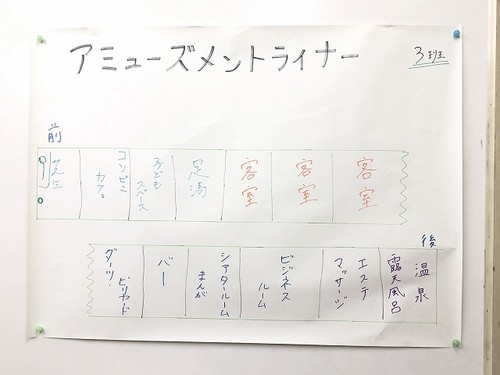 アミューズメントライナー
3班
前
サ店
コンビニ
カフェ
子ども
スペース
足湯
客室
客室
客室
ダーツ・
ビリヤード
バー
シアタールーム
まんが
ビジネス
ルーム
マッサージ
エステ
露天風呂
温泉
後